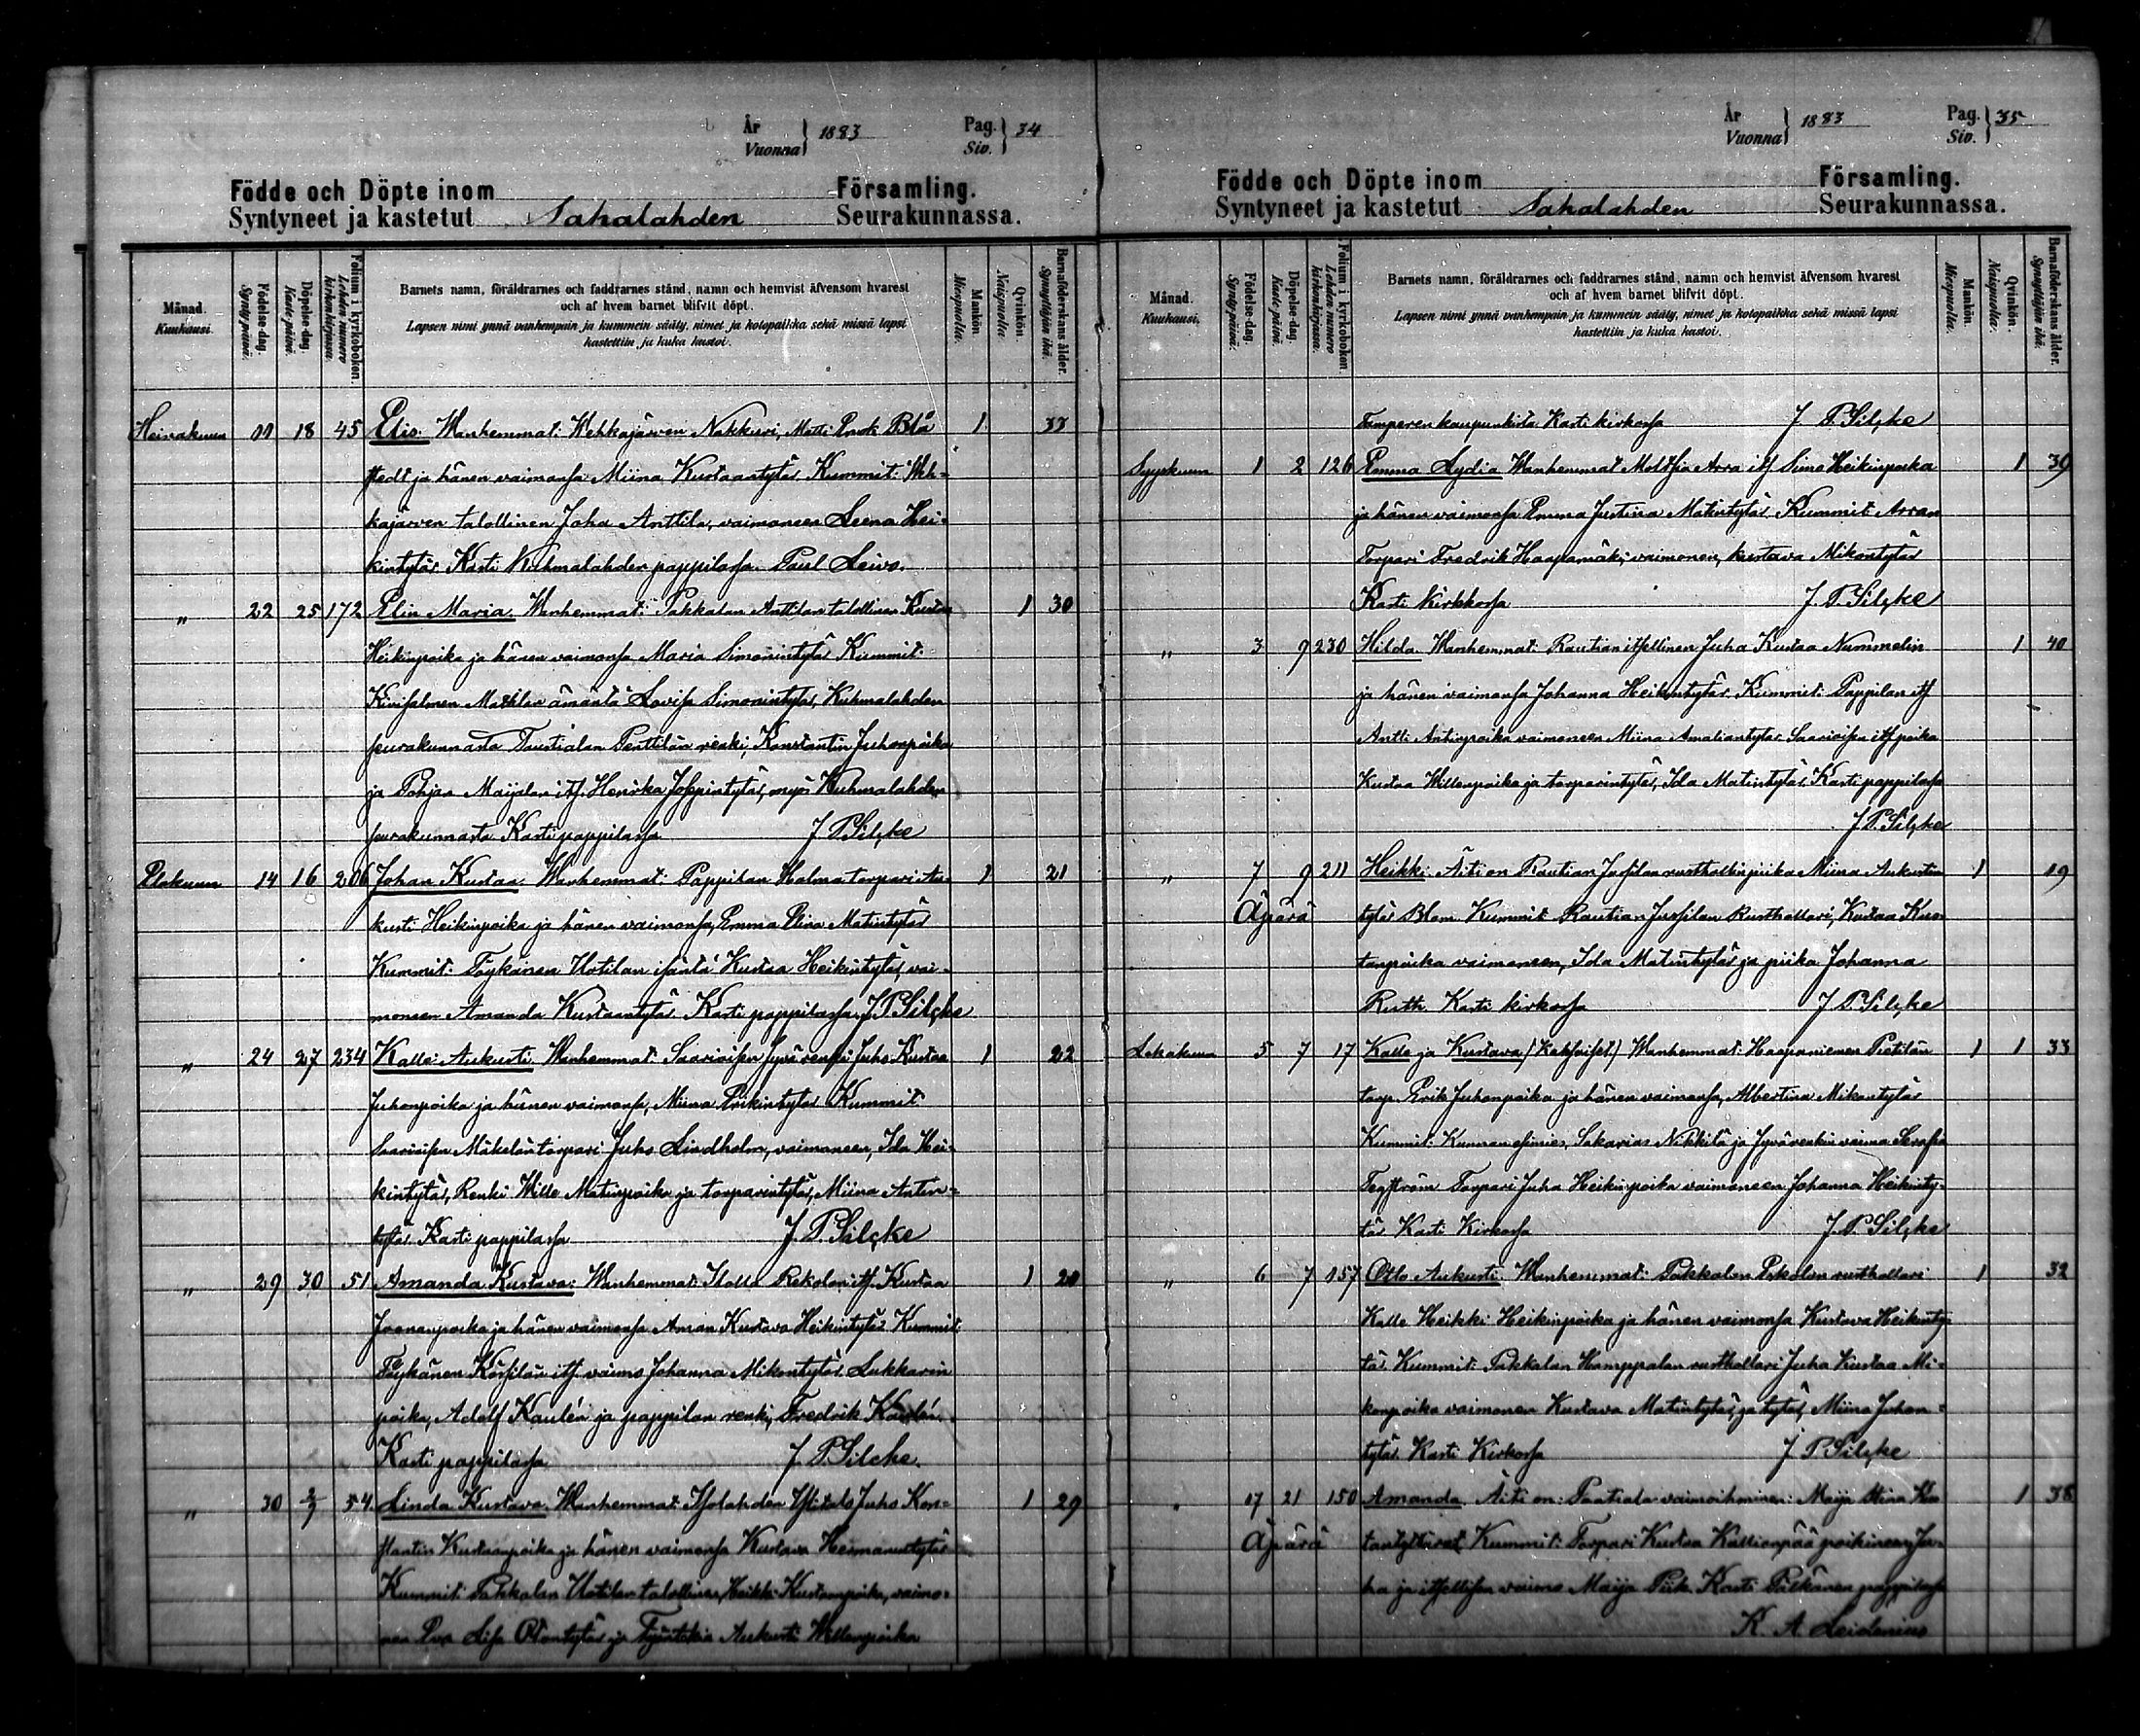 År
Vuonna } 1883
Pag.
Siv. } 34
Födde och Döpte inom Församling.
Syntyneet ja kastetut Sahalahden Seurakunnassa.
Månad.
Kuukausi.
Födelse-dag.
Syntypäivä.
Döpelse-dag.
Kaste-päivä.
Folium i kyrkoboken.
Lehden numero kirkonkirjassa.
Barnets namn, föräldrarnes och faddrarnes stånd, namn och hemvist äfvensom hvarest
och af hvem barnet blifvit döpt.
Lapsen nimi ynnä vanhempain ja kummein sääty, nimet ja kotopaikka sekä missä lapsi
kastettiin ja kuka kastoi.
Mankön.
Miespuolia.
Qvinkön.
Naispuolia.
Barnaföderskans ålder.
Synnyttäjän ikä.
Heinakuun 11 18 45 Elis. Wanhemmat: Wehkajärwen Nakkuri, Matti Blå 1 33
stedt ja hänen vaimonsa Miina Kustaantytär. Kummit: Weh-
kajärven talollinen Joha Anttila, vaimoneen Leena Hei-
kintytär. Kasti Kuhmalahden pappilassa. Paul Leivo.
„ 22 25 172 Elin Maria. Wanhemmat: Pakkalan Anttilan talollinen Kustaa 1 30
Heikinpoika ja hänen vaimonsa Maria Simonintytär Kummit:
Kivisalmen emäntä Lovisa Simonintytär, Kuhmalahden
seurakunnasta Taustialan Penttilän renki, Konstantin Juhonpoika
ja Pohjan Maijalan itf. Henrika Josepintytär, myös Kuhmalahden
seurakunnasta Kasti pappilassa J P Silcke
Elokuun 14 16 206 Johan Kustaa. Wanhemmat: Pappilan Halma torpari Au- 1 21
kusti Heikinpoika ja hänen vaimonsa, Emma Elina Matintytär
Kummit: Töykänen Uotilan isäntä Kustaa Heikintytär, vai-
moneen Amanda Kustaantytär. Kasti pappilassa. J P Silcke
„ 24 27 234 Kalle Aukusti. Wanhemmat: Saarioisen jyvä renki Juho Kustaa 1 22
Juhonpoika ja hänen vaimonsa, Miina Erikintytär Kummit
Saarioisen Mäkelän torpari Juho Lindholm, vaimoneen, Ida Hei-
kintytär, Renki Wille Matinpoika ja torparintytär, Miina Antin-
tytär. Kasti pappilassa J. P. Silcke
„ 29 30 51 Amanda Kustava: Wanhemmat: Rekolan itf. Kustaa 1 20
Joonanpoika ja hänen vaimonsa Aman Kustava Heikintytär. Kummit:
Töykänen Körsilän itf. vaimo Johanna Mikontytär. Lukkarin
poika, Adolf Kaulén ja pappilan renki, Fredrik Kaulén.
Kasti pappilassa J. P Silcke.
„ 30 2/9 54 Linda Kustava. Wanhemmat: Isolahden Juho Kon- 1 29
stantin Kustaanpoika ja hänen vaimonsa Kustava Hermanintytär
Kummit: Pakkalan Uotilan talollinen, Heikki Kustaanpoika, vaimo-
nen Eva Lisa Ottontytär ja Aukusti Willenpoika
År
Vuonna } 1883
Pag.
Siv. } 35
Födde och Döpte inom Församling.
Syntyneet ja kastetut Sahalahden Seurakunnassa.
Månad.
Kuukausi.
Födelse-dag.
Syntypäivä.
Döpelse-dag.
Kaste-päivä.
Folium i kyrkoboken.
Lehden numero kirkonkirjassa.
Barnets namn, föräldrarnes och faddrarnes stånd, namn och hemvist äfvensom hvarest
och af hvem barnet blifvit döpt.
Lapsen nimi ynnä vanhempain ja kummein sääty, nimet ja kotopaikka sekä missä lapsi
kastettiin ja kuka kastoi.
Mankön.
Miespuolia.
Qvinkön.
Naispuolia.
Barnaföderskans ålder.
Synnyttäjän ikä.
Tamperen kaupunkista Kasti kirkossa J P. Silcke
Syyskuun 1 2 126 Emma Lydia Wanhemmat Moltsia Arra itf Simo Heikinpoika 1 39
ja hänen vaimonsa Emma Justina Matintytär. Kummit: Arran
Torpari Fredrik Haapamäki, vaimonen, kustava Mikontytär
Kasti kirkkossa J. P. Silcke
„ 3 9 230 Hilda. Wanhemmat: Rautian itsellinen Juha Kustaa Nummelin 1 40
ja hänen vaimonsa Johanna Heikintytär. Kummit: Pappilan itf
Antti Antinpoika vaimoneen Miina Amaliantytär Saarioisen itf poika
Kustaa Willenpoika ja torparintytär, Ida Matintytär. Kasti pappilassa
J P. Silcke
„ 7 9 211 Heikki. Äiti on Rautian Jussilan rusthollin piika Miina Aukustin 1 19
Äpärä tytär Blom. Kummit: Rautian Jussilan Rusthollari, Kustaa Kus-
taanpoika vaimoneen, Ida Matintytär ja piika Johanna
Ruth. Kasti kirkossa J. P. Silcke
Lokakuun 5 7 17 Kalle ja Kustava (Kaksoiset) Wanhemmat: Haapaniemen Pietilän 1 1 33
torp. Erik Juhonpoika ja hänen vaimonsa, Albertina Mikontytär
Kummit: Kunnan esimies, Sakarias Nikkilä ja Jyvärenkin vaimo Serafia
Tegström Torpari Juha Heikinpoika vaimoneen Johanna Heikinty-
tär Kasti Kirkossa J. P. Silcke
„ 6 7 157 Otto Aukusti. Wanhemmat: Pakkalan Eskolan rusthollari 1 32
Kalle Heikki Heikinpoika ja hänen vaimonsa Kustava Heikinty-
tär. Kummit: Pakkalan Hamppalan rusthollari Juha Kustaa Mi-
konpoika vaimonen Kustava Matintytär, ja tytär, Miina Johan-
tytär. Kasti Kirkossa J P. Silcke
„ 17 21 150 Amanda. Äiti on: vaimoihminen: Maija Stina Kus- 1 38
Äpärä Kummit: Torpari Kustaa Kallionpää poikineen Ju-
ha ja itsellisen vaimo Maija Piik. Kasti Pälkänen pappilassa
K. A. Leidenius